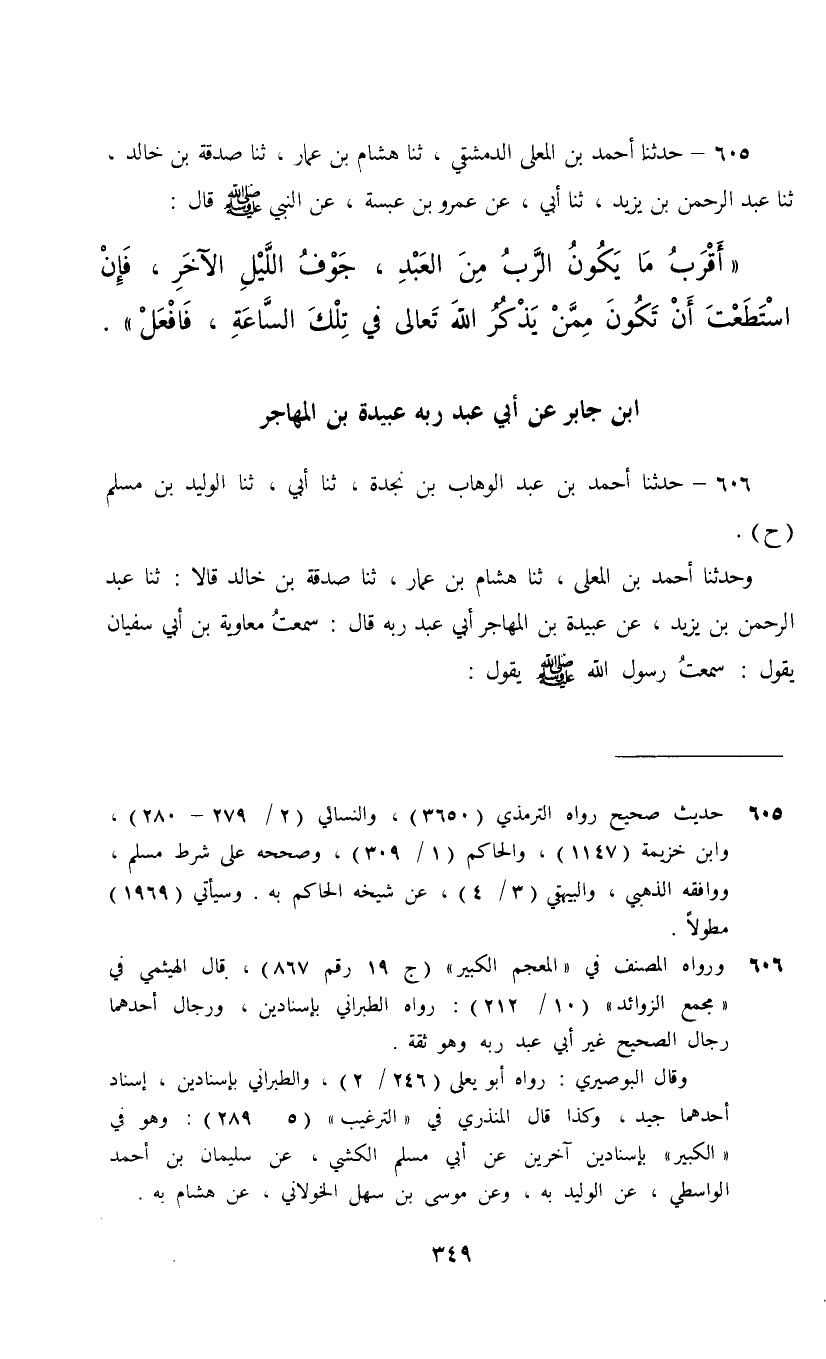 ٦٠٥ – حدثنا أحمد بن المعلى الدمشقي ، ثنا هشام بن عمار ، ثنا صدقة بن خالد ،
ثنا عبد الرحمن بن يزيد ، ثنا أبي ، عن عمرو بن عبسة ، عن النبي ﷺ قال :
« أَقْرَبُ مَا يَكُونُ الرَّبُ مِنَ العَبْدِ ، جَوْفُ اللَّيْلِ الآخَرِ ، فَإِنْ
اسْتَطَعْتَ أَنْ تَكُونَ مِمَّنْ يَذْكُرُ اللهَ تَعالى في تِلْكَ السَّاعَةِ ، فَافْعَلْ » .
ابن جابر عن أبي عبد ربه عبيدة بن المهاجر
٦٠٦ – حدثنا أحمد بن عبد الوهاب بن نجدة ، ثنا أبي ، ثنا الوليد بن مسلم
(ح) .
وحدثنا أحمد بن المعلى ، ثنا هشام بن عمار ، ثنا صدقة بن خالد قالا : ثنا عبد
الرحمن بن يزيد ، عن عبيدة بن المهاجر أبي عبد ربه قال : سمعتُ معاوية بن أبي سفيان
يقول : سمعتُ رسول الله ﷺ يقول :
٦٠٥ حديث صحيح رواه الترمذي (٣٦٥٠) ، والنسائي (٢ / ٢٧٩ – ٢٨٠) ،
وابن خزيمة (١١٤٧) ، والحاكم (١ / ٣٠٩) ، وصححه على شرط مسلم ،
ووافقه الذهبي ، والبيهقي (٣ / ٤) ، عن شيخه الحاكم به . وسيأتي (١٩٦٩)
مطولاً .
٦٠٦ ورواه المصنف في «المعجم الكبير» (ج ١٩ رقم ٨٦٧) ، قال الهيثمي في
« مجمع الزوائد » (١٠ / ٢١٢) : رواه الطبراني بإسنادين ، ورجال أحدهما
رجال الصحيح غير أبي عبد ربه وهو ثقة .
وقال البوصيري : رواه أبو يعلى (٢٤٦ / ٢) ، والطبراني بإسنادين ، إسناد
أحدهما جيد ، وكذا قال المنذري في « الترغيب » (٥ ٢٨٩) : وهو في
« الكبير » بإسنادين آخرين عن أبي مسلم الكشي ، عن سليمان بن أحمد
الواسطي ، عن الوليد به ، وعن موسى بن سهل الخولاني ، عن هشام به .
٣٤٩